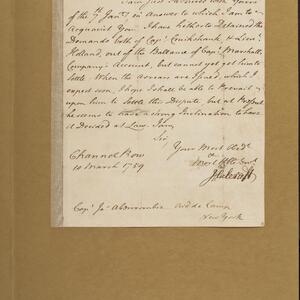 I am just favored with Yours
of the 7th Jany in Answer to which I am to
Acquaint You I have hitherto Detained the
Demands both of Capt Cruikshank & Lieut
Holland, out of the Ballance of Capt Marshall
Company's Account, but cannot yet get him to
settle. When the arrears are Issued, which I
expect soon, I hope I shall be able to Prevail
upon him to Settle this Dispute, but at Present
he seems to have a strong Inclination to have
it Decided at Law. I am
Sir
Your Most Obedt
&
Most Hble Servt
JCalcraft
Channel Row
10 March 1759
Capt Js Abercrombie Aid de Camp
New York